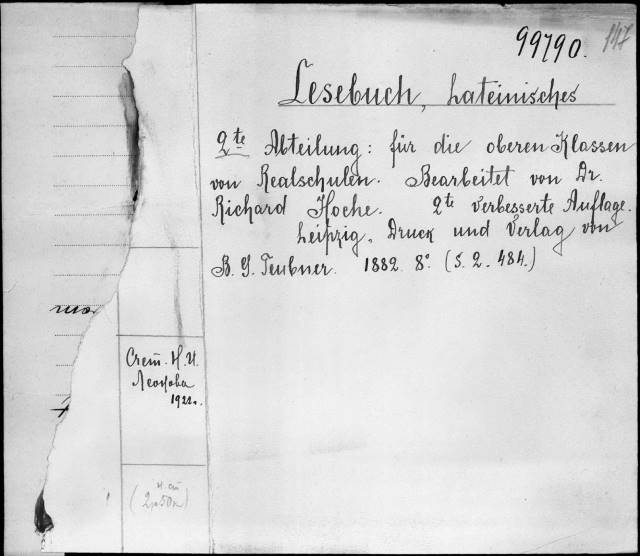 99790. 147
Lesebuch, Lateinisches
2te Abteilung: für die oberen Klassen
von Realschulen. Bearbeitet von Dr.
Richard Hoche. 2te verbesserte Auflage.
Leipzig, Druck und Verlag von
B. G. Teubner. 1882. 8°. (S. 2. 484.)
Н. И.
Леонова
1922г.